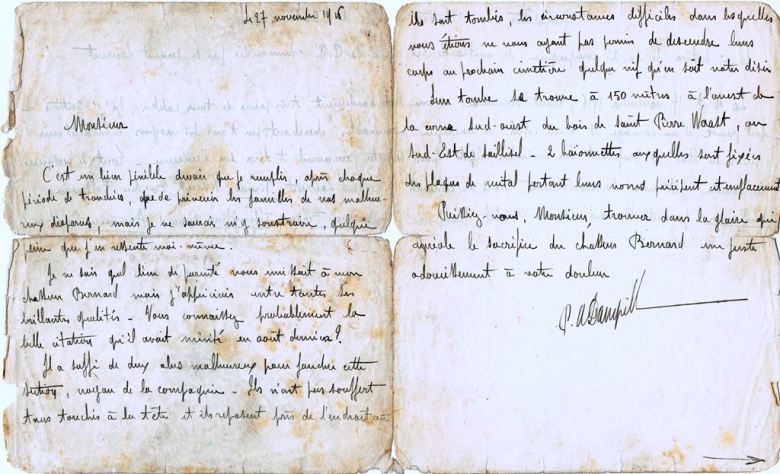 Le 27 novembre 1916
Monsieur
C'est un bien pénible devoir que je remplis, après chaque
période de tranchées, que de prévenir les familles de nos malheu-
reux disparus, mais je ne saurais m'y soustraire, quelque
peine que j'en ressente moi-même.
Je ne sais quel lien de parenté vous unissait à mon
chasseur Bernard mais j'appréciais entre toutes ses
brillantes qualités - Vous connaissez probablement la
belle citation qu'il avait mérité en août dernier?
Il a suffi de deux obus malheureux pour faucher cette
section, noyau de la compagnie - Ils n'ont pas souffert
tous touchés à la tête et ils reposent près de l'endroit où
ils sont tombés, les circonstances difficiles dans lesquelles
nous étions ne nous ayant pas permis de descendre leurs
corps au prochain cimetière quelque vif qu'en soit notre désir
Leur tombe se trouve à 150 mètres à l'ouest de
la corne sud-ouest du bois de Saint Pierre Waast, au
Sud-Est de Saillisel - 2 baïonnettes auxquelles sont fixées
des plaques de métal portant leurs noms précisent cet emplacement
Puissiez-vous, Monsieur, trouver dans la gloire qui
auréole le sacrifice du chasseur Bernard un juste
adoucissement à votre douleur